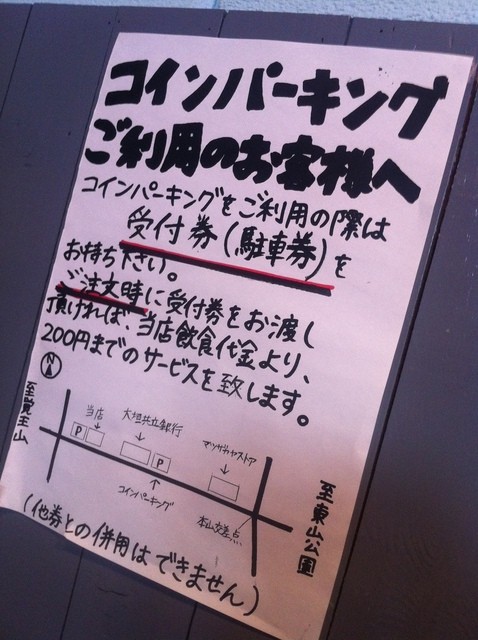 コインパーキング
ご利用のお客様へ
コインパーキングをご利用の際は
受付券(駐車券)を
お持ち下さい。
ご注文時に受付券をお渡し
頂ければ、当店飲食代金より、
200円までのサービスを致します。
N
至覚王山
当店
P
大垣共立銀行
P
コインパーキング
マツザカヤストア
本山交差点
至東山公園
(他券との併用はできません)